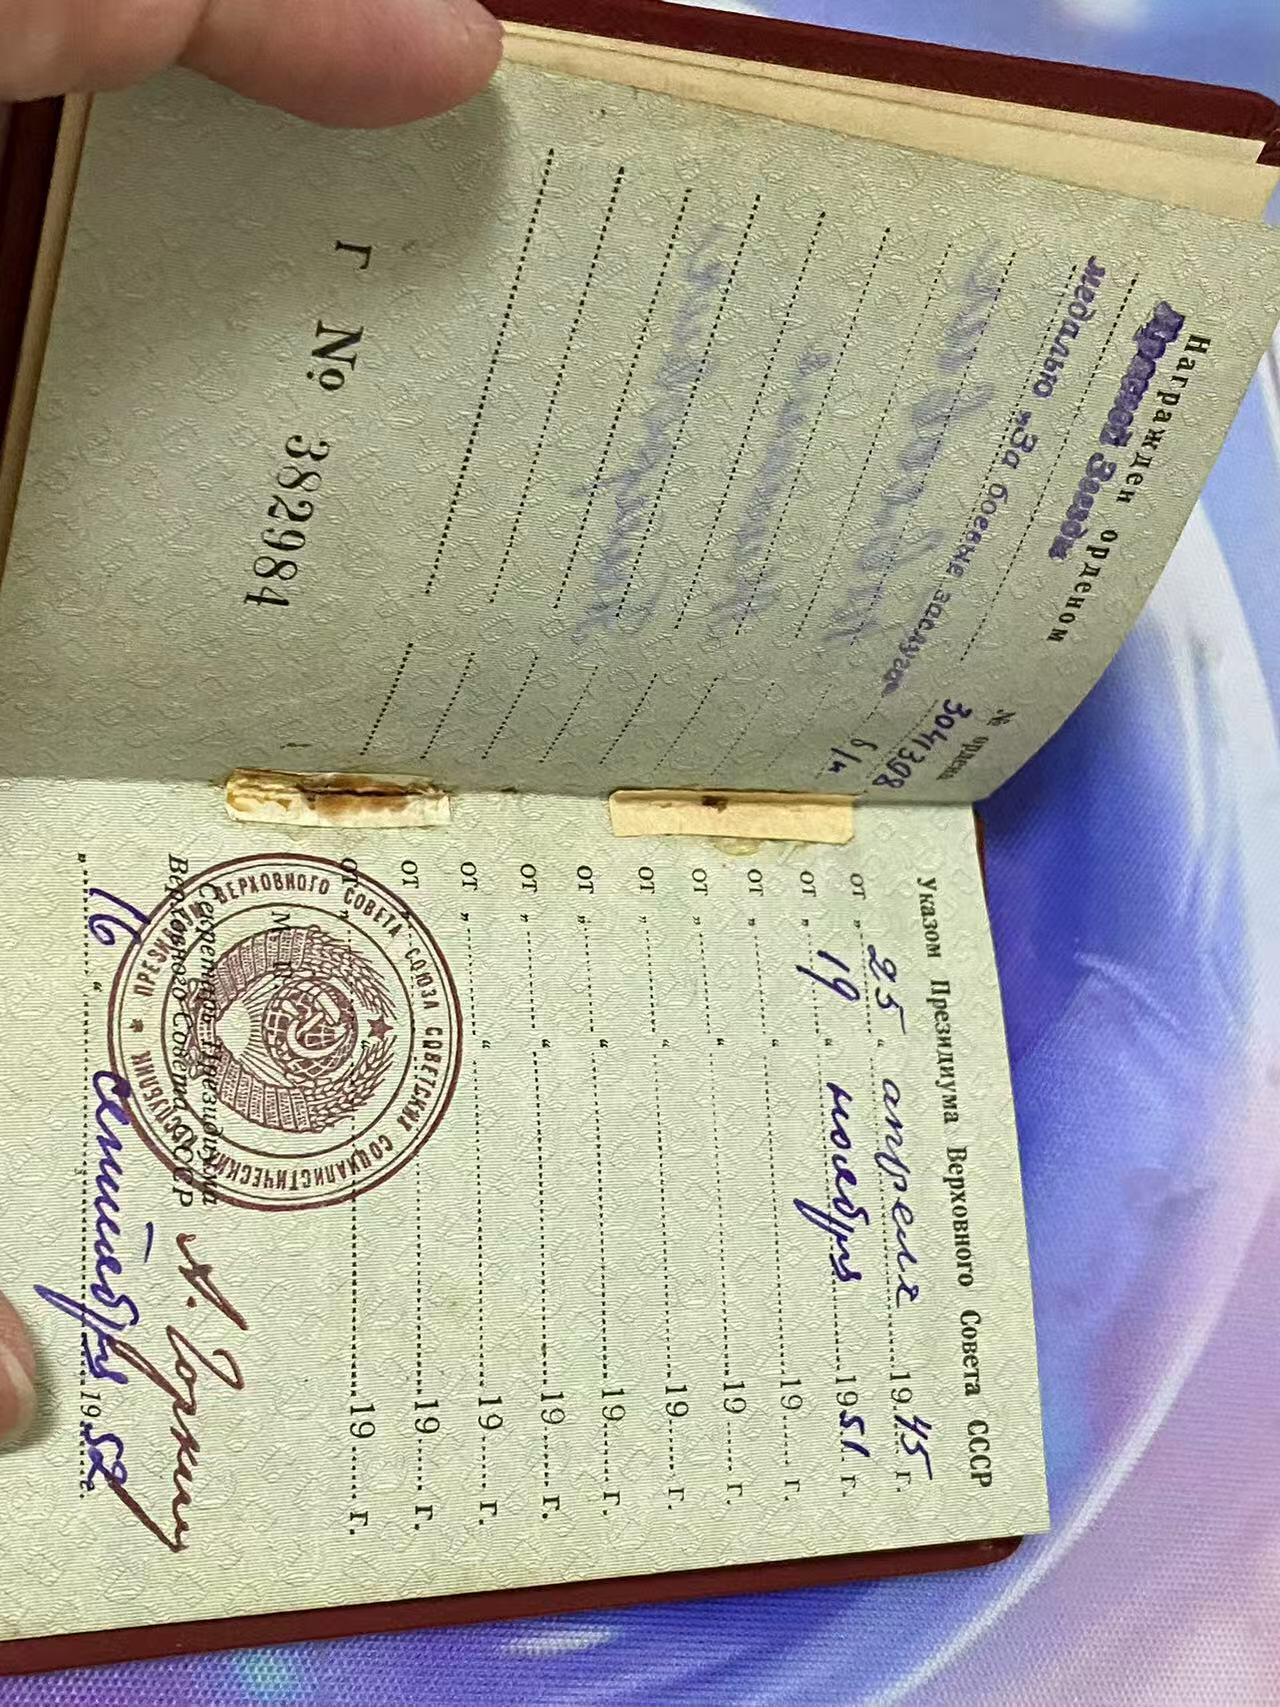 Награжден орденом
№ ордена
Красной Звезды
3041398
медалью „За боевые заслуги"
б/н
Г № 382984
Указом Президиума Верховного Совета СССР
от „ 25 " апреля 1945 г.
от „ 19 " ноября 1951 г.
от „ " 19 г.
от „ " 19 г.
от „ " 19 г.
от „ " 19 г.
от „ " 19 г.
от „ " 19 г.
от „ " 19 г.
от „ " 19 г.
М. П.
ПРЕЗИДИУМ ВЕРХОВНОГО СОВЕТА СОЮЗА СОВЕТСКИХ СОЦИАЛИСТИЧЕСКИХ РЕСПУБЛИК
Секретарь Президиума
Верховного Совета СССР
А. Горкин
„ 16 " сентября 1952 г.